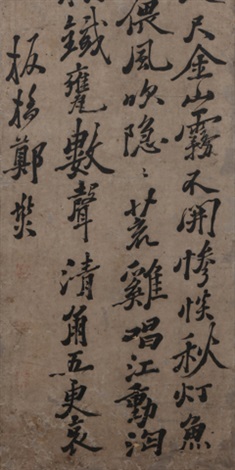 尺金山霧不開惨秋灯魚
偎風吹隐〻荒雞唱江動洶
鐵甕數聲清角五更哀
板橋鄭燮